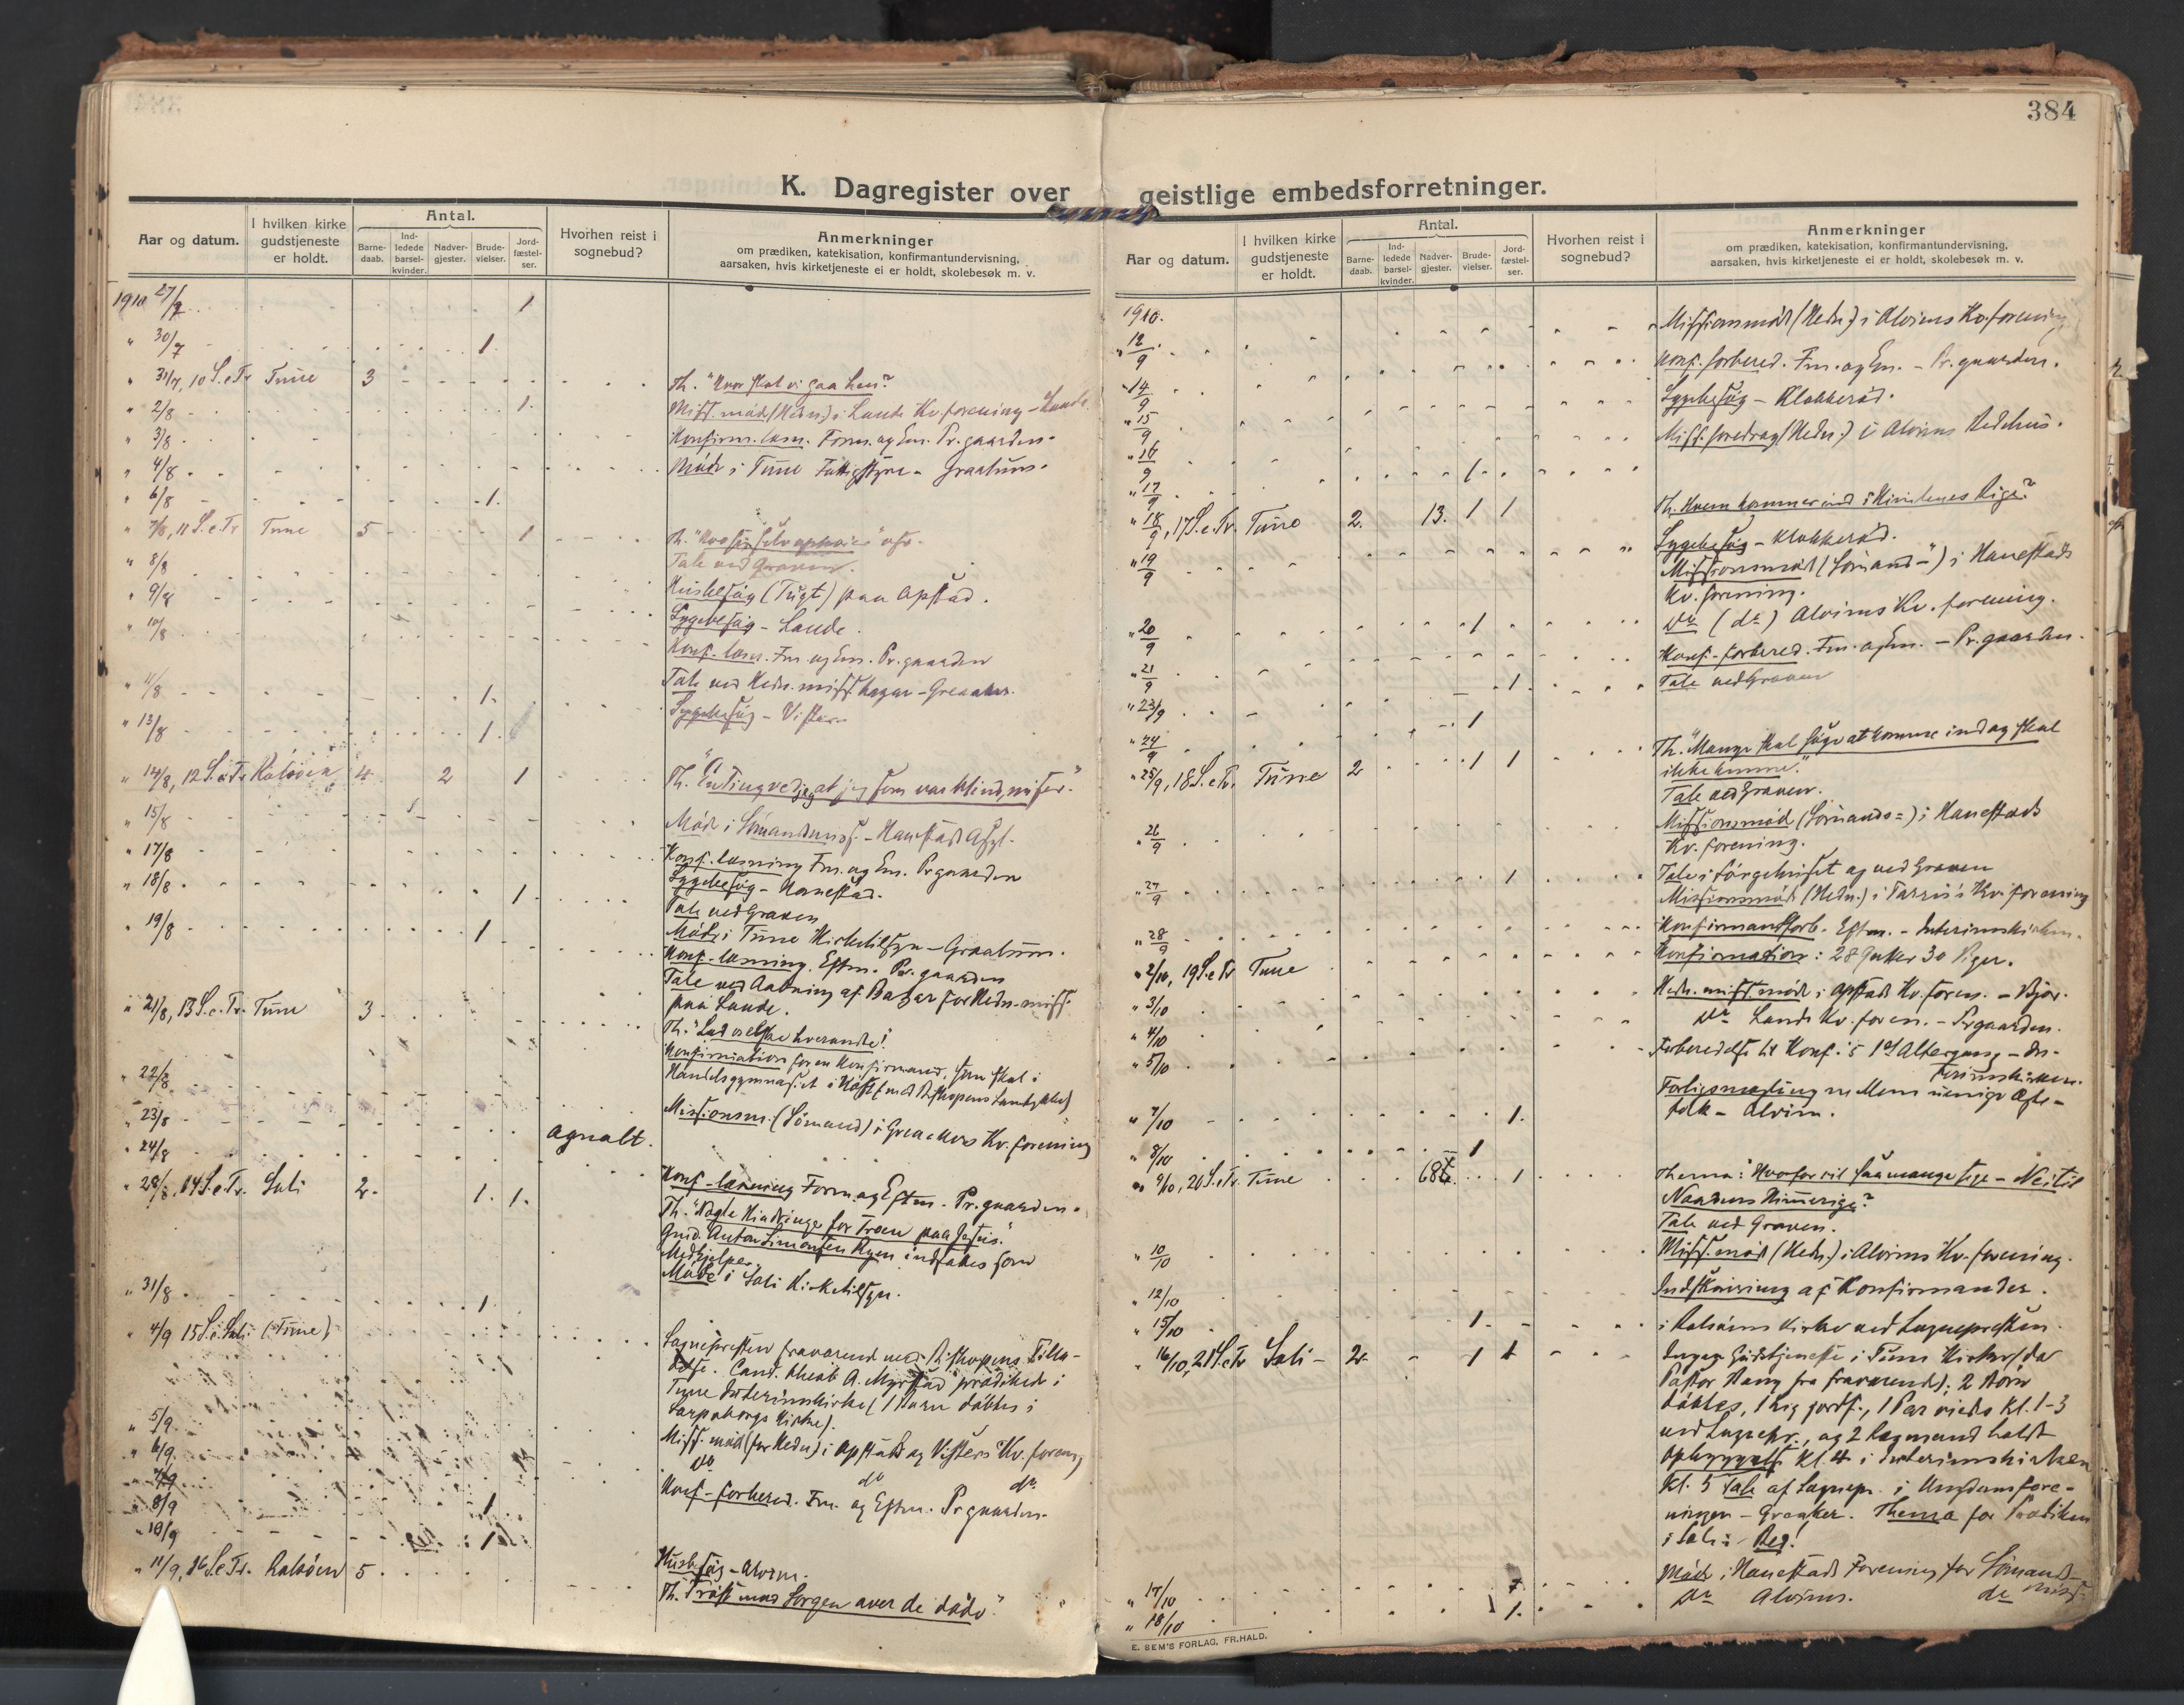 384
K. Dagregister over geistlige embedsforretninger.
Aar og datum.
I hvilken kirke gudstjeneste er holdt.
Antal.
Barne-daab.
Ind-ledede barsel-kvinder.
Nadver-gjester.
Brude-vielser.
Jord-fæstel-ser.
Hvorhen reist i sognebud?
Anmerkninger
om prædiken, katekisation, konfirmantundervisning,
aarsaken, hvis kirketjeneste ei er holdt, skolebesøk m. v.
1910 27/7 1
" 30/7 1
" 31/7, 10 S.e.Tr Tune 3 Th. "Hvor skal vi gaa hen?
" 2/8 1. Miss.møde (Hedn.) i Lande Kv.forening - Lande
" 3/8 Konfirm.læsn. Form. og Em. Pr.gaarden.
" 4/8 Møde i Tune Fattigstyre - Graalum.
" 6/8 1.
" 7/8, 11 S.e.Tr Tune 5 1
Tale ved Graven.
" 8/8 Husbesøg (Tugt) paa Opstad.
" 9/8 Sygebesøg - Lande.
" 10/8 Konf.-læsn. Fm. og Em. Pr.gaarden
Tale ved Hedn.miss - Greaaker.
" 11/8 1. Sygebesøg - Visteren
" 13/8 1.
" 14/8, 12 S.e.Tr Rolsøen 4 2 1 Th. "En Ting ved jeg at jeg som var blind, nu ser."
" 15/8 Møde i Sømandsmiss. - Hanestad
" 17/8 Konf.læsning Fm. og Em. Prgaarden
Sygebesøg - Hanestad.
" 18/8 1. Tale ved Graven
Møde i Tune Kirketilsyn - Graalum.
" 19/8 1 Konf.-læsning. Eftm. Pr.gaarden
Tale ved Aabning af Bazar for Hedn.miss.
paa Lande.
" 21/8, 13 S.e.Tr. Tune 3. Th. "Lad os elske hverandre!"
Konfirmation for en Konfirmand, som skal i
Handelsgymnasiet i Høst (med Biskopens Samtykke)
" 22/8 Missionsm. (Sømand) i Greaakers Kv.forening
" 23/8
" 24/8 Agnalt. Konf.-læsning Form. og Eftm. Pr.gaarden.
" 28/8, 14 S.e.Tr. Soli 2. 1. 1. Th. "Nogle Hindringer for Troen paa Jesus."
Gmd. Anton Simonsen Ryen indsattes som
Medhjelper
Møde i Soli Kirketilsyn.
" 31/8 1.
" 4/9 15 S.e. Soli (Tune) Sognepresten fraværende med Biskopens Tilla-
delse. Cand. theol. A. Myrstad prædiked i
Tune Interimskirke (1 Barn døbtes i
Sarpsborgs Kirke).
" 5/9. Miss.møde (for Hedn.) i Opstad og Visteren Kv.forening
" 6/9. do do do
" 7/9 Konf.-forbered. Fm. og Eftm. Prgaarden.
" 8/9 1
" 10/9 1.
Husbesøg - Alvim.
" 11/9, 16 S.e.Tr. Rolsøen 5 Th. "Trøst mod Sorgen over de døde."
1910. Missionsmøde (Hedn.) i Alvims Kv.forening
" 12/9
Konf.forbered. Fm. og Em. - Pr.gaarden.
" 14/9 Sygebesøg - Klokkerød.
" 15/9 Miss.foredrag (Hedn.) i Alvims Bedehus.
" 16/9 1.
" 17/9
" 18/9, 17 S.e.Tr. Tune 2. 13. 1 1 Th. Hvem kommer ind i Himlenes Rige?
Sygebesøg - Klokkerød.
" 19/9 Missionsmøde (Sømand-") i Hanestads
Kv.forening.
" 20/9 1 do (do) Alvims Kv.forening.
" 21/9 Konf.-forbered. Fm. og Em. - Pr.gaarden.
" 23/9 1. Tale ved Graven
" 24/9 1
" 25/9, 18 S.e.Tr. Tune 2 1 1 Th. "Mange skal søge at komme ind og skal
ikke kunne."
Tale ved Graven.
" 26/9 Missionsmøde (Sømands-) i Hanestads
Kv.forening.
" 27/9 1 Tale i Sørgehuset og ved Graven
Missionsmøde (Hedn.) i Tarris's Kv.forening
" 28/9 Konfirmantforb. Eftm. - Interimskirken.
" 2/10, 19 S.e.Tr Tune Konfirmation: 28 Gutter 30 Piger.
" 3/10 Hedn.miss.møde i Opstads Kv.foren. - Bjør.
" 4/10 do Lande Kv.foren. - Prgaarden.
" 5/10 Forberedelse til Konf.'s 1ste Altergang - In-
terimskirken.
Forligsmægling mellem uenige Ægte-
folk - Alvim.
" 7/10 1.
" 8/10 1
" 9/10, 20 S.e.Tr. Tune 68 1 Thema: Hvorfor vil saa mange sige - Nei til
Naadens Himmerige?
Tale ved Graven.
" 10/10 Miss.møde (Hedn.) i Alvims Kv.forening.
" 12/10 Indskrivning af Konfirmander.
" 15/10 1. i Rolsøens Kirke ved Sognepresten.
" 16/10, 21 S.e.Tr Soli - 2. 1 1 Ingen Gudstjeneste i Tune Kirke (da
Pastor Haug fra fraværende); 2 Børn
døbtes, 1 Lig jordf., 1 Par viedes Kl. 1-3
ved Sognepr., og 2 Lægmænd holdt
Opbyggelse Kl. 4 i Interimskirken
Kl. 5 Tale af Sognepr. i Ungdomsfore-
ningen - Greaker. Thema for Prædiken
i Soli: - Bed!
" 17/10 Møde i Hanestads Forening for Sømands-
miss.
" 18/10 1. do Alvims. do
E. SEM'S FORLAG, FR.HALD.